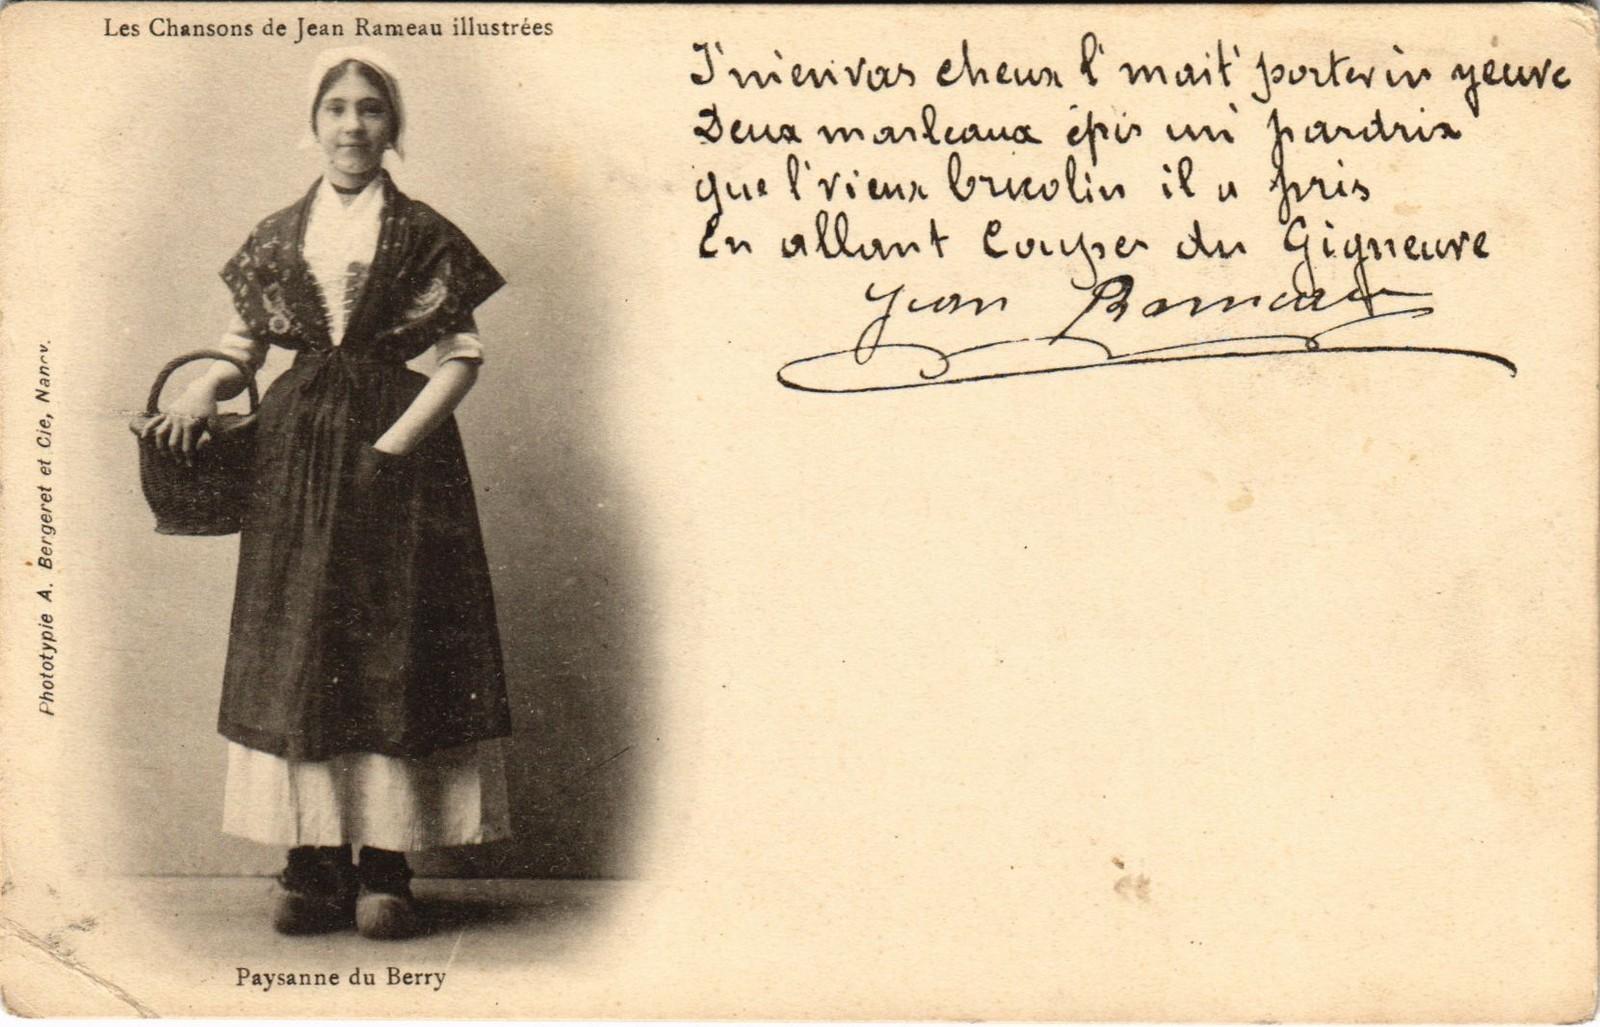 Les Chansons de Jean Rameau illustrées
J'm'en vas cheux l'mait' porter in yeuve
Deux marleaux épis un' pardrix
que l'vieux bricolin il a pris
En allant couper du Gigneuve
Jean Rameau
Phototypie A. Bergeret et Cie, Nancy.
Paysanne du Berry